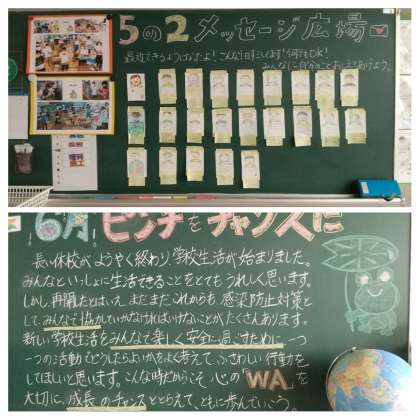 5の2 メッセージ広場
最近できるようになったよ!こんな1日にしてます!何でもOK!
みんなに自分のことおしえてあげよう。
6月 ピンチをチャンスに
長い休校がようやく終わり、学校生活が始まりました。
みんなといっしょに生活できることをとてもうれしく思います。
しかし、再開したとはいえ、まだまだこれからも、感染防止対策と
して、みんなで協力していかなければいけないことが、たくさんあります。
新しい学校生活をみんなで楽しく安全に過ごすために、一つ
一つの活動でどうしたらよいかをよく考えて、ふさわしい行動を
してほしいと思います。こんな時だからこそ、心の「WA」を
大切に、成長のチャンスととらえて、ともに歩んでいこう。